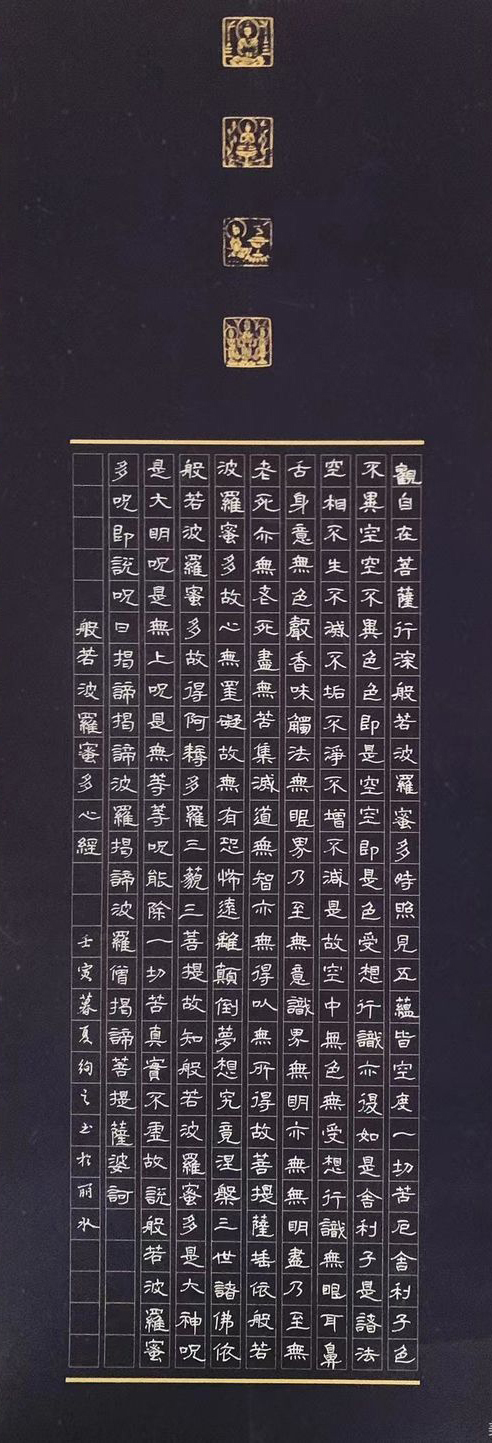 觀自在菩薩行深般若波羅蜜多時照見五蘊皆空度一切苦厄舍利子色
不異空空不異色色即是空空即是色受想行識亦復如是舍利子是諸法
空相不生不滅不垢不淨不增不減是故空中無色無受想行識無眼耳鼻
舌身意無色聲香味觸法無眼界乃至無意識界無明亦無無明盡乃至無
老死亦無老死盡無苦集滅道無智亦無得以無所得故菩提薩埵依般若
波羅蜜多故心無罣礙故無有恐怖遠離顛倒夢想究竟涅槃三世諸佛依
般若波羅蜜多故得阿耨多羅三藐三菩提故知般若波羅蜜多是大神呪
是大明呪是無上呪是無等等呪能除一切苦真實不虛故說般若波羅蜜
多呪即說呪曰揭諦揭諦波羅揭諦波羅僧揭諦菩提薩婆訶
般若波羅蜜多心經 壬寅暮夏絢之书於丽水